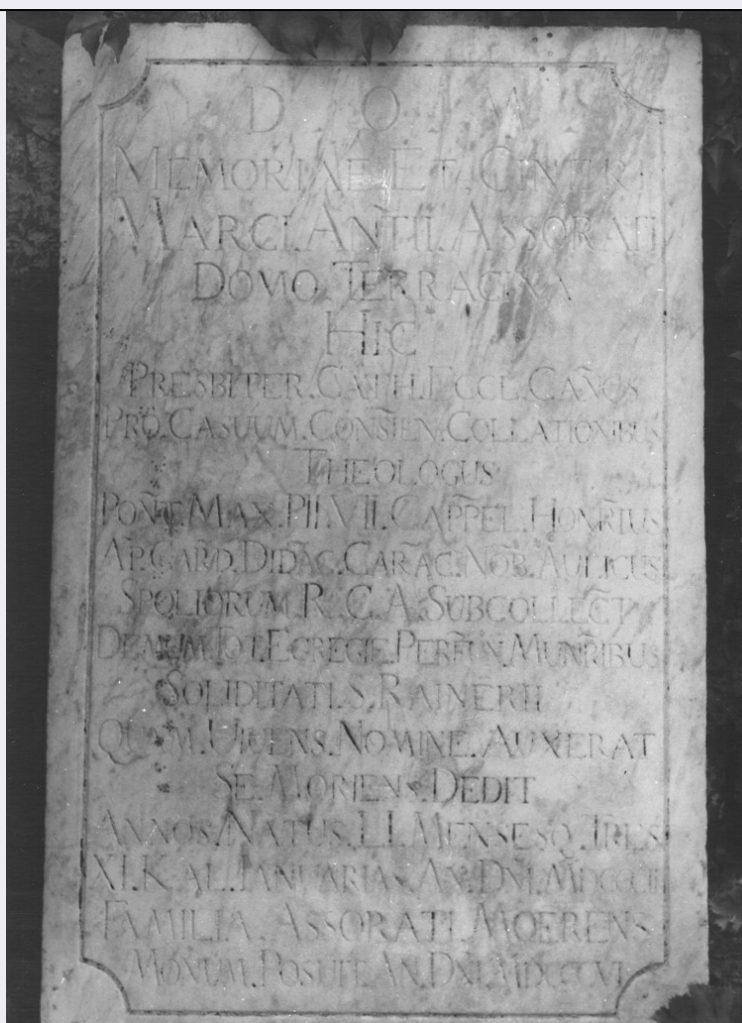 D. O. M.
MEMORIAE. ET. CINERI
MARCI. ANTII. ASSORATI
DOMO. TERRACINA
HIC
PRESBITER. CATH. ECCL. CAN̄CS
PRO. CASUUM. CONS̄IEN. COLLATIONIBUS
THEOLOGUS
PON̄T. MAX. PII. VII. CAPP̄EL. HONR̄IUS
AP. CARD. DIDAC. CARAC. NOB. AULICUS
SPOLIORUM. R. C. A. SUBCOLLECT̄
DEMUM. TOT. EGREGIE. PERFUN. MUNR̄IBUS
SOLIDITATI. S. RAINERII
QUAM. UIUENS. NOMINE. AUXERAT
SE. MORIENS. DEDIT
ANNOS. NATUS. LI. MENSESQ. TRES
XI. KAL. IANUARIAS. AN. DNI.
FAMILIA. ASSORATI. MOERENS
MONUM. POSUIT. AN. DNI. MDCCCVI